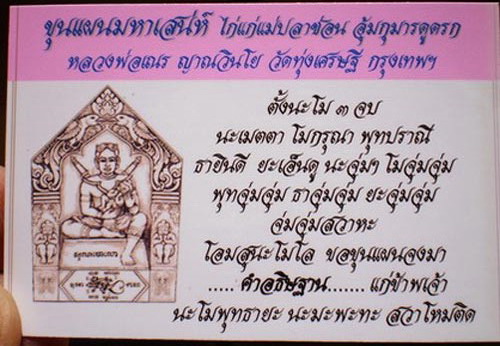 ขุนแผนมหาเสน่ห์ ไก่แก่แม่ปลาช่อน อุ้มกุมารดูดรก
หลวงพ่อเณร ญาณวินโย วัดทุ่งเศรษฐี กรุงเทพฯ
ตั้งนะโม ๓ จบ
นะเมตตา โมกรุณา พุทปราณี
ธายินดี ยะเอ็นดู นะจุ่มๆ โมจุ่มจุ่ม
พุทจุ่มจุ่ม ธาจุ่มจุ่ม ยะจุ่มจุ่ม
จุ่มจุ่มสวาหะ
โอมสุนะโมโล ขอขุนแผนจงมา
......คำอธิษฐาน.......แก่ข้าพเจ้า
นะโมพุทธายะ นะมะพะทะ สวาโหมติด